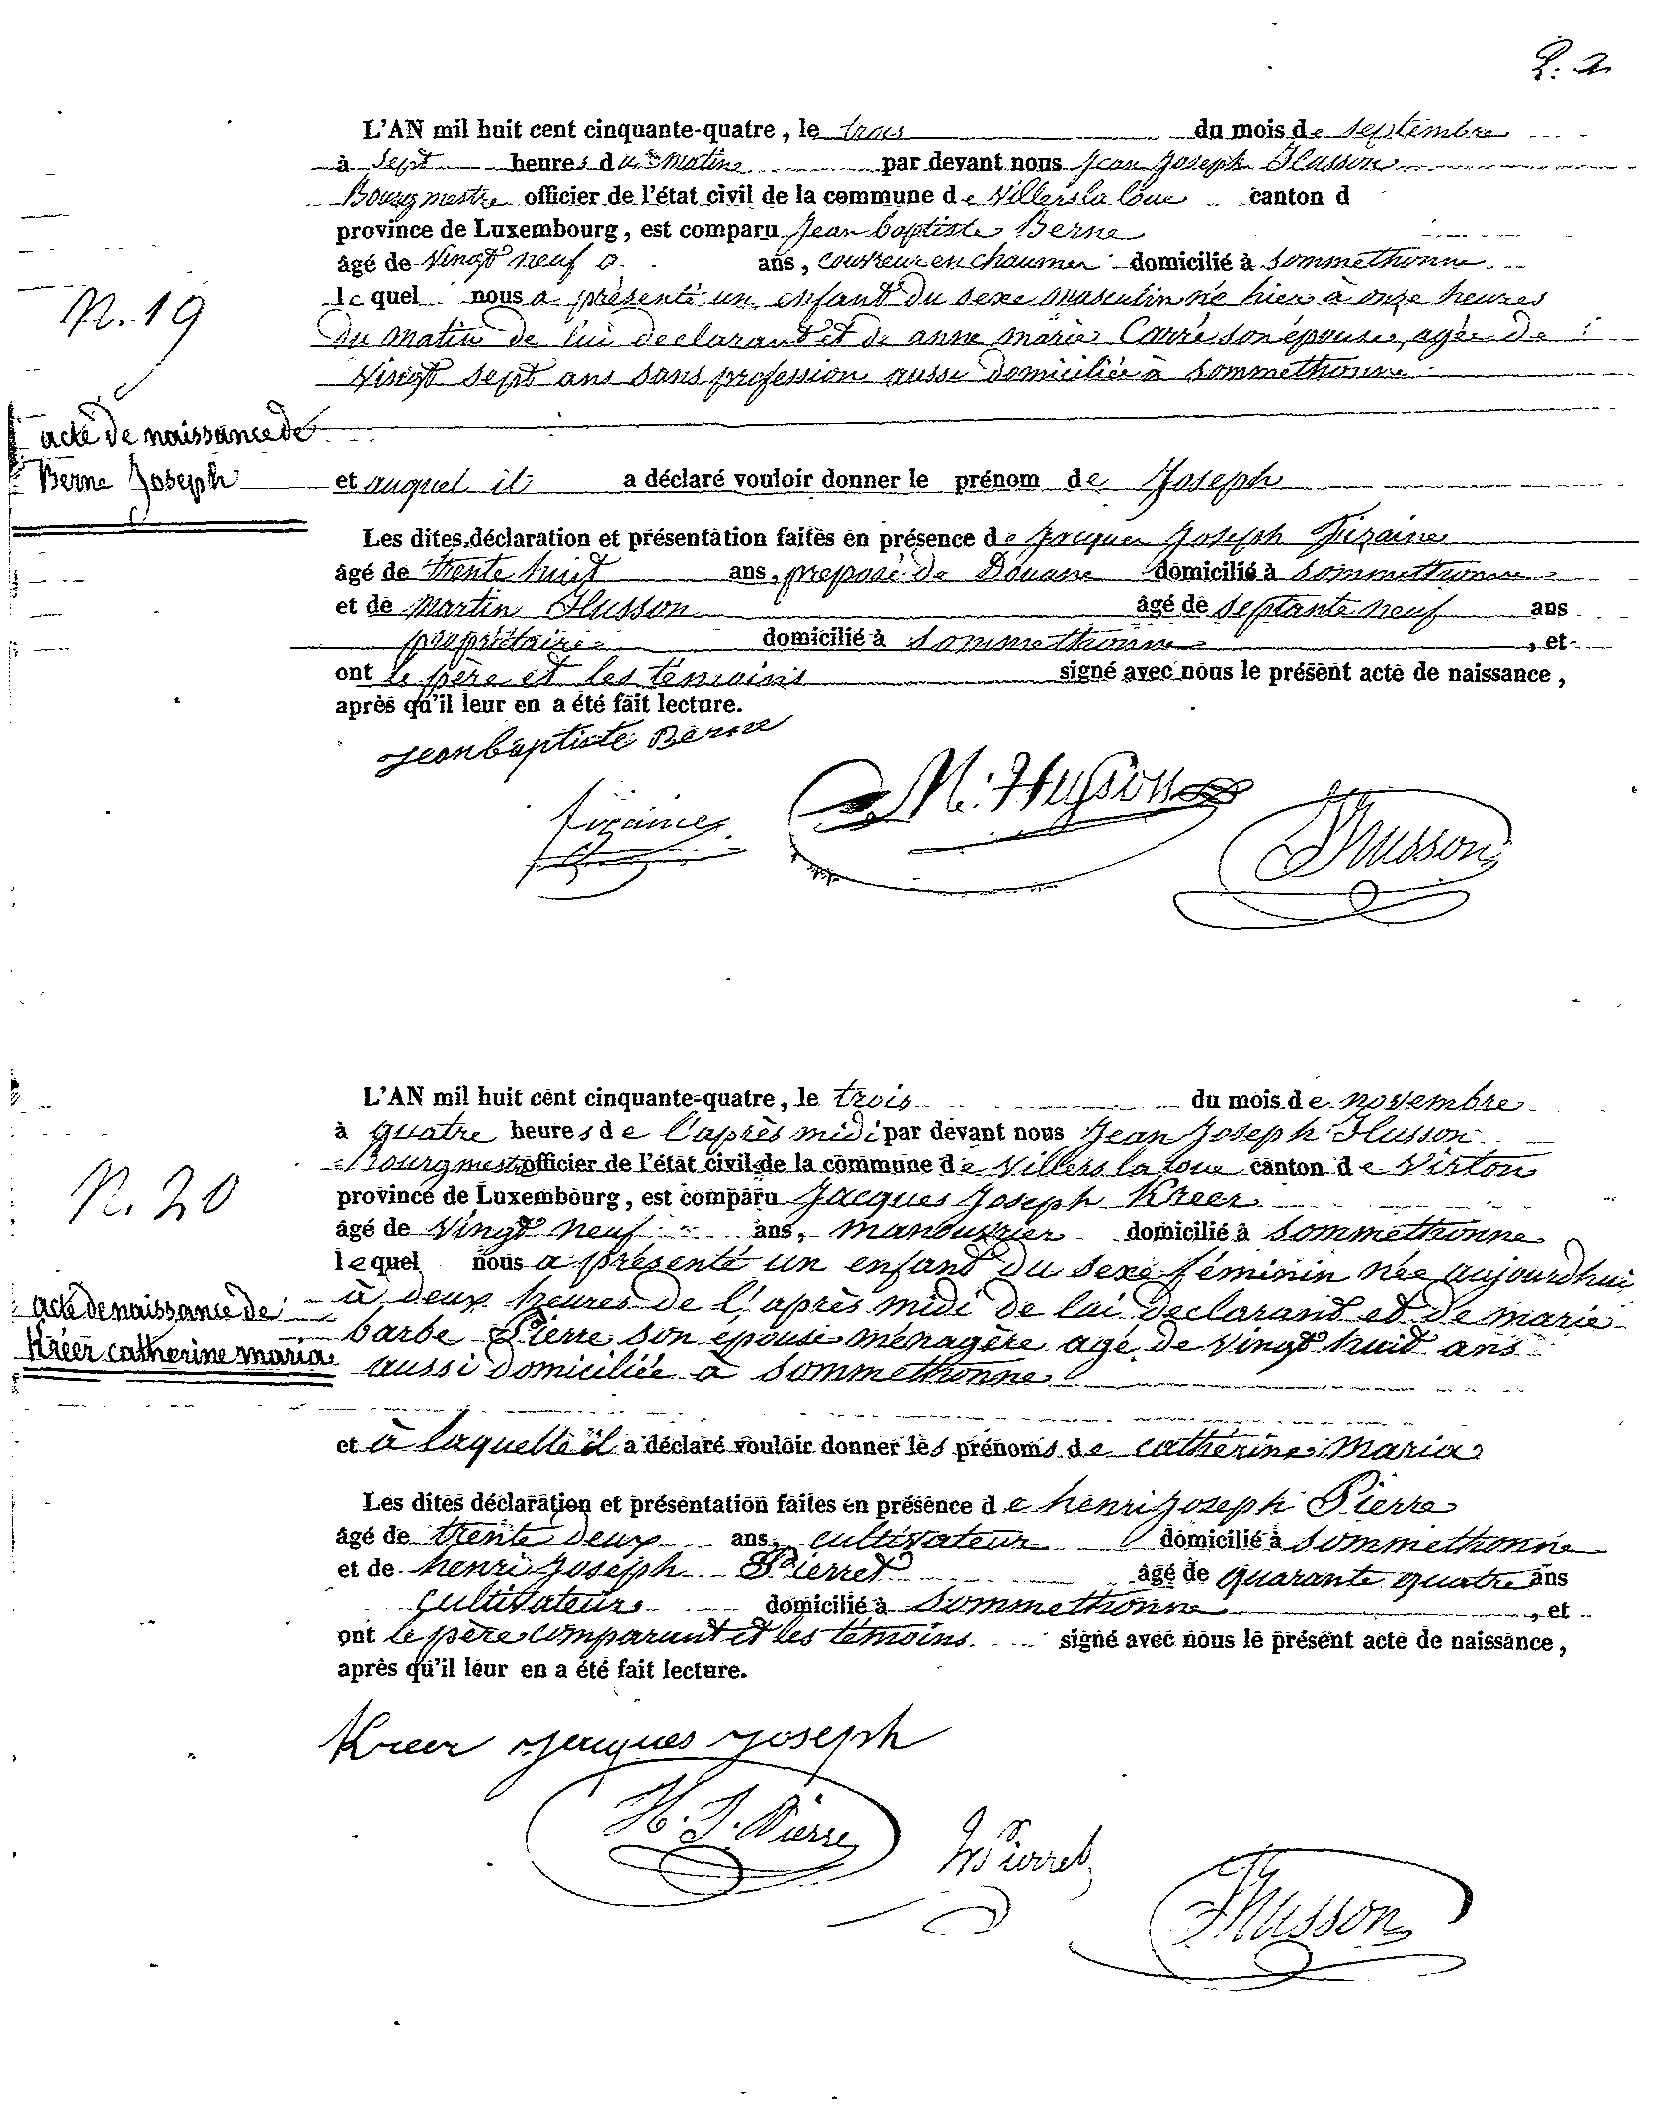 L'AN mil huit cent cinquante-quatre, le trois du mois de septembre
à sept heures du matin par devant nous Jean Joseph Husson
Bourgmestre officier de l'état civil de la commune de Villers la loue canton d
province de Luxembourg, est comparu Jean baptiste Berne
âgé de vingt neuf ans, couvreur en chaume domicilié à Sommethonne
N. 19
lequel nous a présenté un enfant du sexe masculin né hier à onze heures
du matin de lui declarant et de anne marie Carré son épouse, agée de
vingt sept ans sans profession aussi domiciliée à Sommethonne
acte de naissance de
Berne Joseph
et auquel il a déclaré vouloir donner le prénom de Joseph
Les dites déclaration et présentation faites en présence de Jacques Joseph Fizaine
âgé de trente huit ans, preposé de Douane domicilié à Sommethonne
et de Martin Husson âgé de septante neuf ans
propriétaire domicilié à Sommethonne, et
ont le père et les témoins signé avec nous le présent acte de naissance,
après qu'il leur en a été fait lecture.
Jean baptiste Berne
M. Husson
fizaine
JHusson
L'AN mil huit cent cinquante-quatre, le trois du mois de novembre
à quatre heures de l'après midi par devant nous Jean Joseph Husson
Bourgmestre officier de l'état civil de la commune de Villers la loue canton de Virton
N. 20
province de Luxembourg, est comparu Jacques Joseph Kreer
âgé de vingt neuf ans, manouvrier domicilié à Sommethonne
lequel nous a présenté un enfant du sexe féminin née aujourdhui
à deux heures de l'après midi de lui declarant et de marie
barbe Pierre son épouse ménagère agé de vingt huit ans
aussi domiciliée à Sommethonne
acte de naissance de
Kréer catherine maria
et à laquelle il a déclaré vouloir donner les prénoms de catherine maria
Les dites déclaration et présentation faites en présence de henri Joseph Pierre
âgé de trente deux ans, cultivateur domicilié à Sommethonne
et de henri Joseph Pierret âgé de quarante quatre ans
cultivateur domicilié à Sommethonne, et
ont le père comparant et les témoins signé avec nous le présent acte de naissance,
après qu'il leur en a été fait lecture.
Kreer Jacques Joseph
H. J. Pierre
Pierret
JHusson